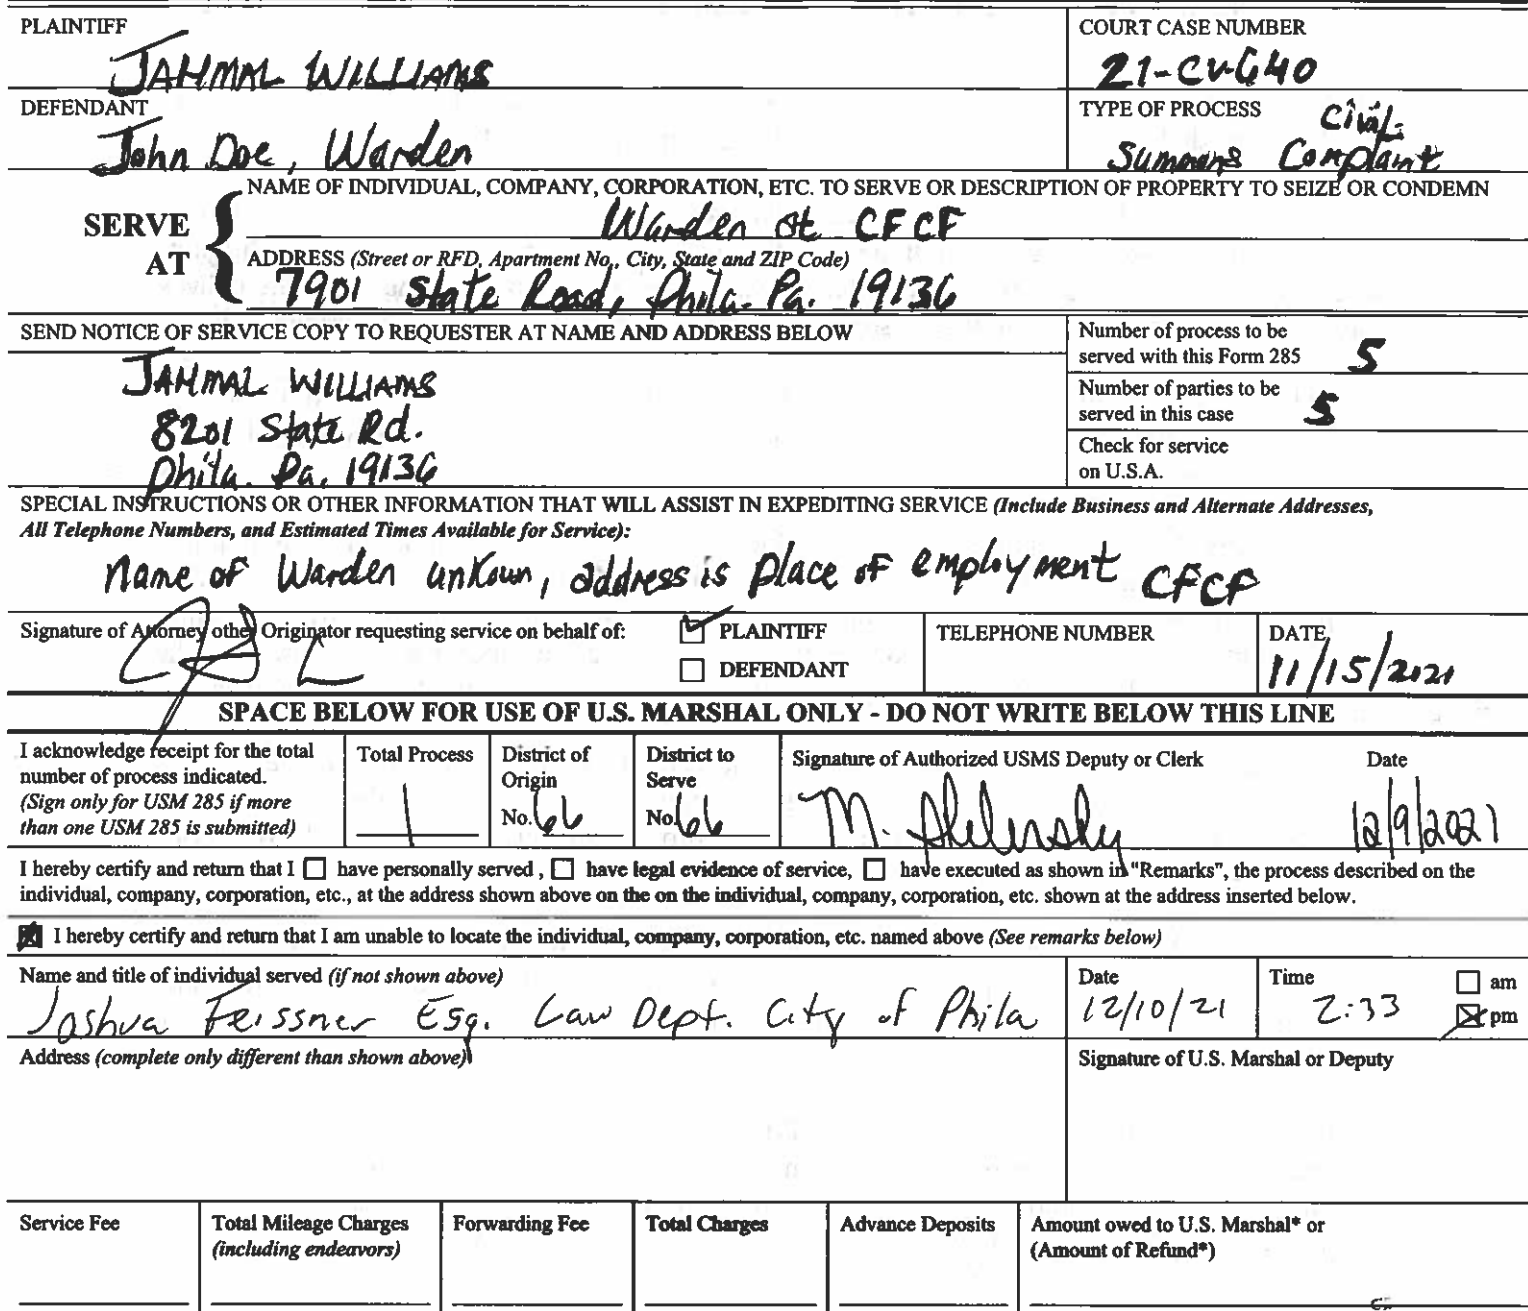 PLAINTIFF
JAHMAL WILLIAMS
COURT CASE NUMBER
21-CV-640
DEFENDANT
John Doe, Warden
TYPE OF PROCESS
Civil
Summons Complaint
NAME OF INDIVIDUAL, COMPANY, CORPORATION, ETC. TO SERVE OR DESCRIPTION OF PROPERTY TO SEIZE OR CONDEMN
SERVE
AT
Warden at CFCF
ADDRESS (Street or RFD, Apartment No., City, State and ZIP Code)
7901 State Road, Phila. Pa. 19136
SEND NOTICE OF SERVICE COPY TO REQUESTER AT NAME AND ADDRESS BELOW
JAHMAL WILLIAMS
8201 State Rd.
Phila. Pa. 19136
Number of process to be
served with this Form 285 5
Number of parties to be
served in this case 5
Check for service
on U.S.A.
SPECIAL INSTRUCTIONS OR OTHER INFORMATION THAT WILL ASSIST IN EXPEDITING SERVICE (Include Business and Alternate Addresses,
All Telephone Numbers, and Estimated Times Available for Service):
Name of Warden unkown, address is place of employment CFCF
Signature of Attorney other Originator requesting service on behalf of:
PLAINTIFF
DEFENDANT
TELEPHONE NUMBER
DATE
11/15/2021
SPACE BELOW FOR USE OF U.S. MARSHAL ONLY - DO NOT WRITE BELOW THIS LINE
I acknowledge receipt for the total
number of process indicated.
(Sign only for USM 285 if more
than one USM 285 is submitted)
Total Process
1
District of
Origin
No. 66
District to
Serve
No. 66
Signature of Authorized USMS Deputy or Clerk
M.
Date
12/9/2021
I hereby certify and return that I have personally served , have legal evidence of service, have executed as shown in "Remarks", the process described on the
individual, company, corporation, etc., at the address shown above on the on the individual, company, corporation, etc. shown at the address inserted below.
I hereby certify and return that I am unable to locate the individual, company, corporation, etc. named above (See remarks below)
Name and title of individual served (if not shown above)
Joshua Feissner Esq. Law Dept. City of Phila
Date
12/10/21
Time
2:33
am
pm
Address (complete only different than shown above)
Signature of U.S. Marshal or Deputy
Service Fee
Total Mileage Charges
(including endeavors)
Forwarding Fee
Total Charges
Advance Deposits
Amount owed to U.S. Marshal* or
(Amount of Refund*)